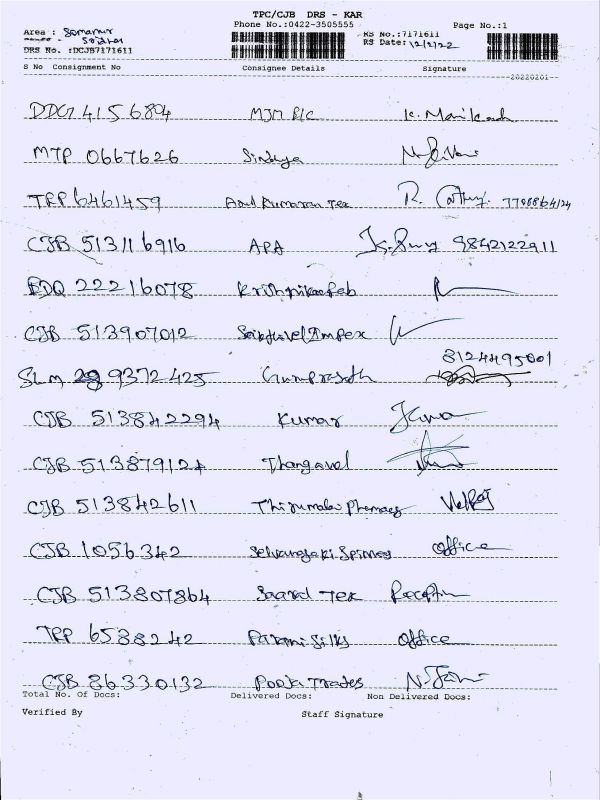 TPC/CJB DRS - KAR
Phone No.:0422-3505555 Page No.:1
Area : Somanur RS No.:7171611
Sridhar RS Date: 12/2/22
DRS No. :DCJB7171611
S No Consignment No Consignee Details Signature
20220201
DDG 4156804 MJM RIC K. Manikand
MTP 0667626 Sindhya
TRP 6461459 Arul Kumaran Tex R. 7708864124
CJB 513116916 APA 9842122911
EDQ 22216078
CJB 513907012 Impex
8124495001
SLM 9372425 Guruprasath
CJB 513842294 Kumar
CJB 513879124 Thangavel
CJB 513842611 Thirumalai Pharmacy VelRaj
CJB 1056342 Selvanayaki Spinners office
CJB 513807864 Saaral Tex Reception
TRP 6538242 Palani Silks office
CJB 86330132 Pooja Trades
Total No. Of Docs: Delivered Docs: Non Delivered Docs:
Verified By Staff Signature